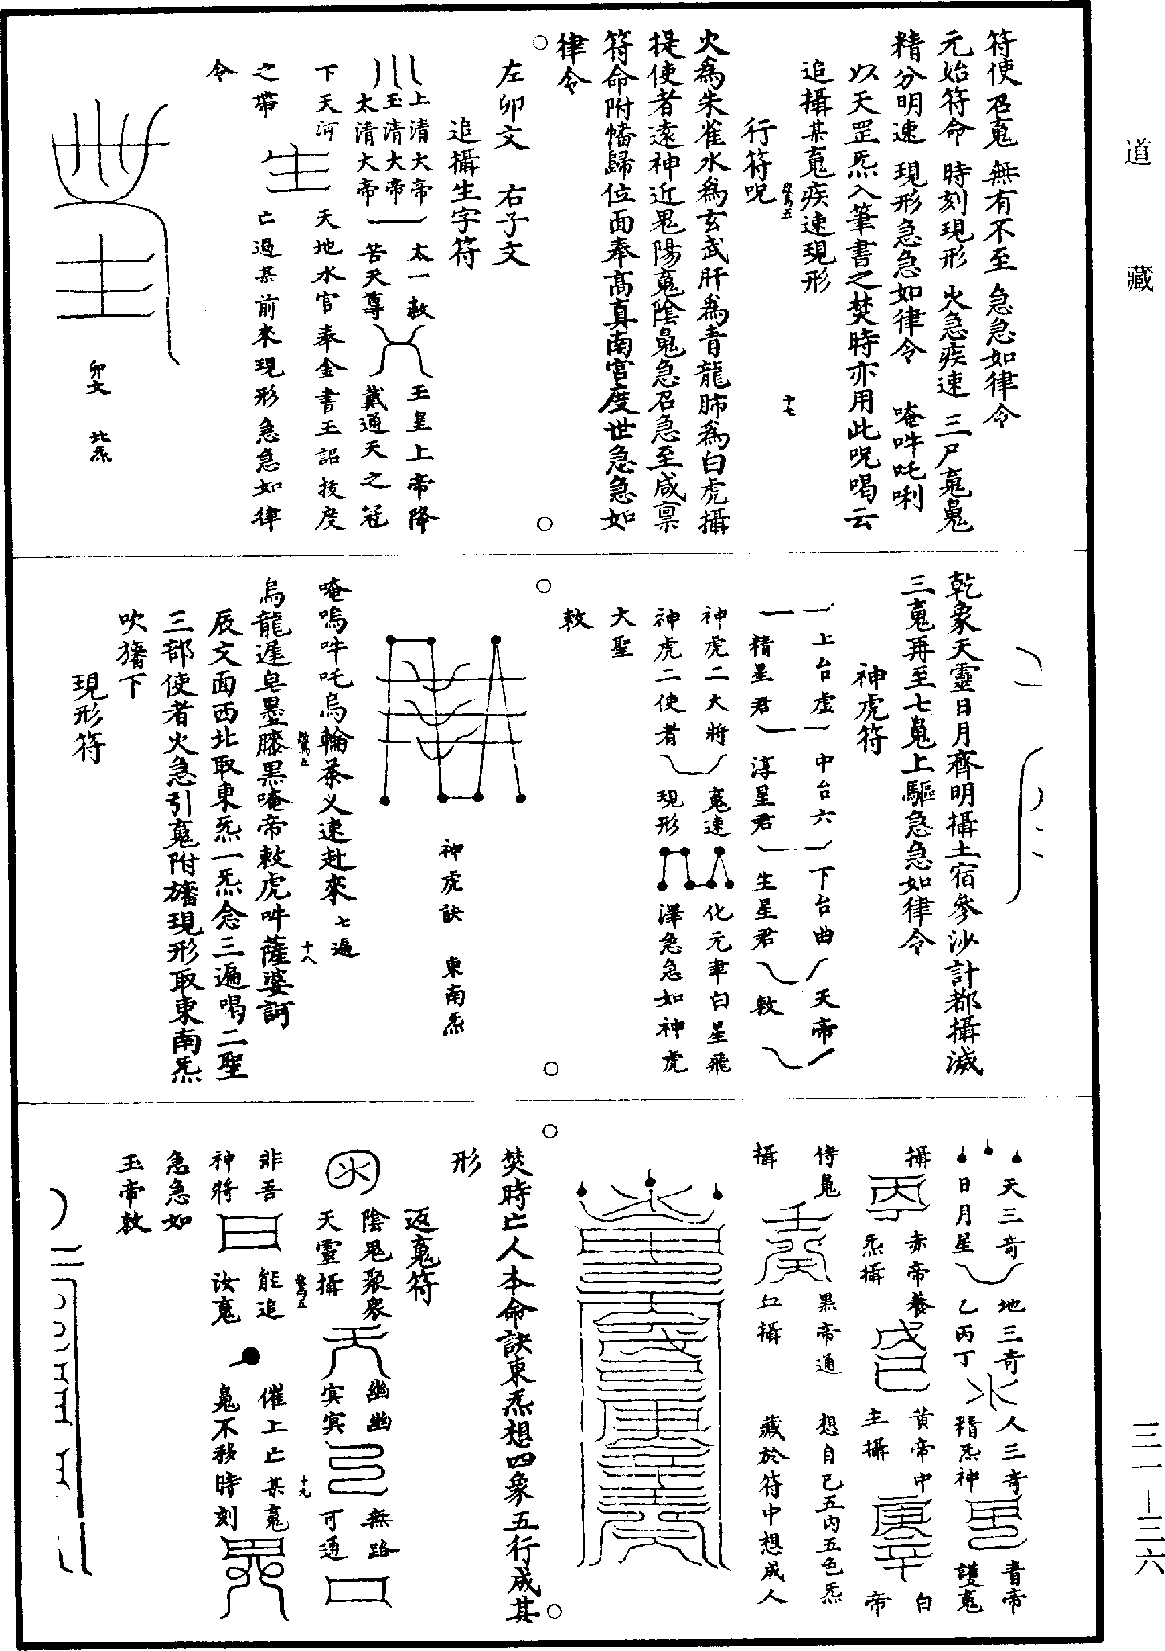 道藏
三一—三六
符使召䰟無有不至急急如律令
元始符命時刻現形火急疾速三尸䰟䰟
精分明速現形急急如律令唵吽吒唎
以天罡炁入筆書之焚時亦用此呪喝云
追攝某䰟疾速現形
行符呪
十七
火為朱雀水為玄武肝為青龍肺為白虎攝
提使者遠神近鬼陽䰟陰鬼急召急至咸稟
符命附幡歸位面奉高真南宮度世急急如
律令
左卯文 右子文
追攝生字符
上清大帝 太一敕 玉皇上帝降
玉清大帝
太清大帝 苦天尊 戴通天之冠
下天河 天地水官奉金書玉詔拔度
之帶 亡過某前來現形急急如律
令
卯文 北炁
乾象天靈日月齊明攝土宿參沙計都攝滅
三䰟再至七䰟上驅急急如律令
神虎符
上台虛 中台六 下台曲 天帝
精星君 淳星君 生星君 敕
神虎二大將 䰟速 化元聿白星飛
神虎二使者 現形 澤急急如神虎
大聖
敕
神虎訣 東南炁
唵嗚吽吒烏輪茶义速赴來 七遍
烏龍進皂墨膝黑唵帝敕虎吽薩婆訶
十八
辰文面西北取東炁一炁念三遍喝二聖
三部使者火急引䰟附旛現形取東南炁
吹旛下
現形符
天三奇 地三奇 人三奇 青帝
日月星 乙丙丁 精炁神 護䰟
攝 丙丁 赤帝養 戊己 黃帝中 庚辛 白
炁攝 主攝 帝
侍䰟 壬癸 黑帝通 想自己五內五色炁
攝 攝 藏於符中想成人
焚時亡人本命訣東炁想四象五行成其
形
返䰟符
火 陰鬼聚衆 天 幽幽 無路
天靈攝 冥冥 可通
十九
非吾 能追 催上亡某䰟
神將 日 汝䰟 䰟不移時刻
急急如
玉帝敕